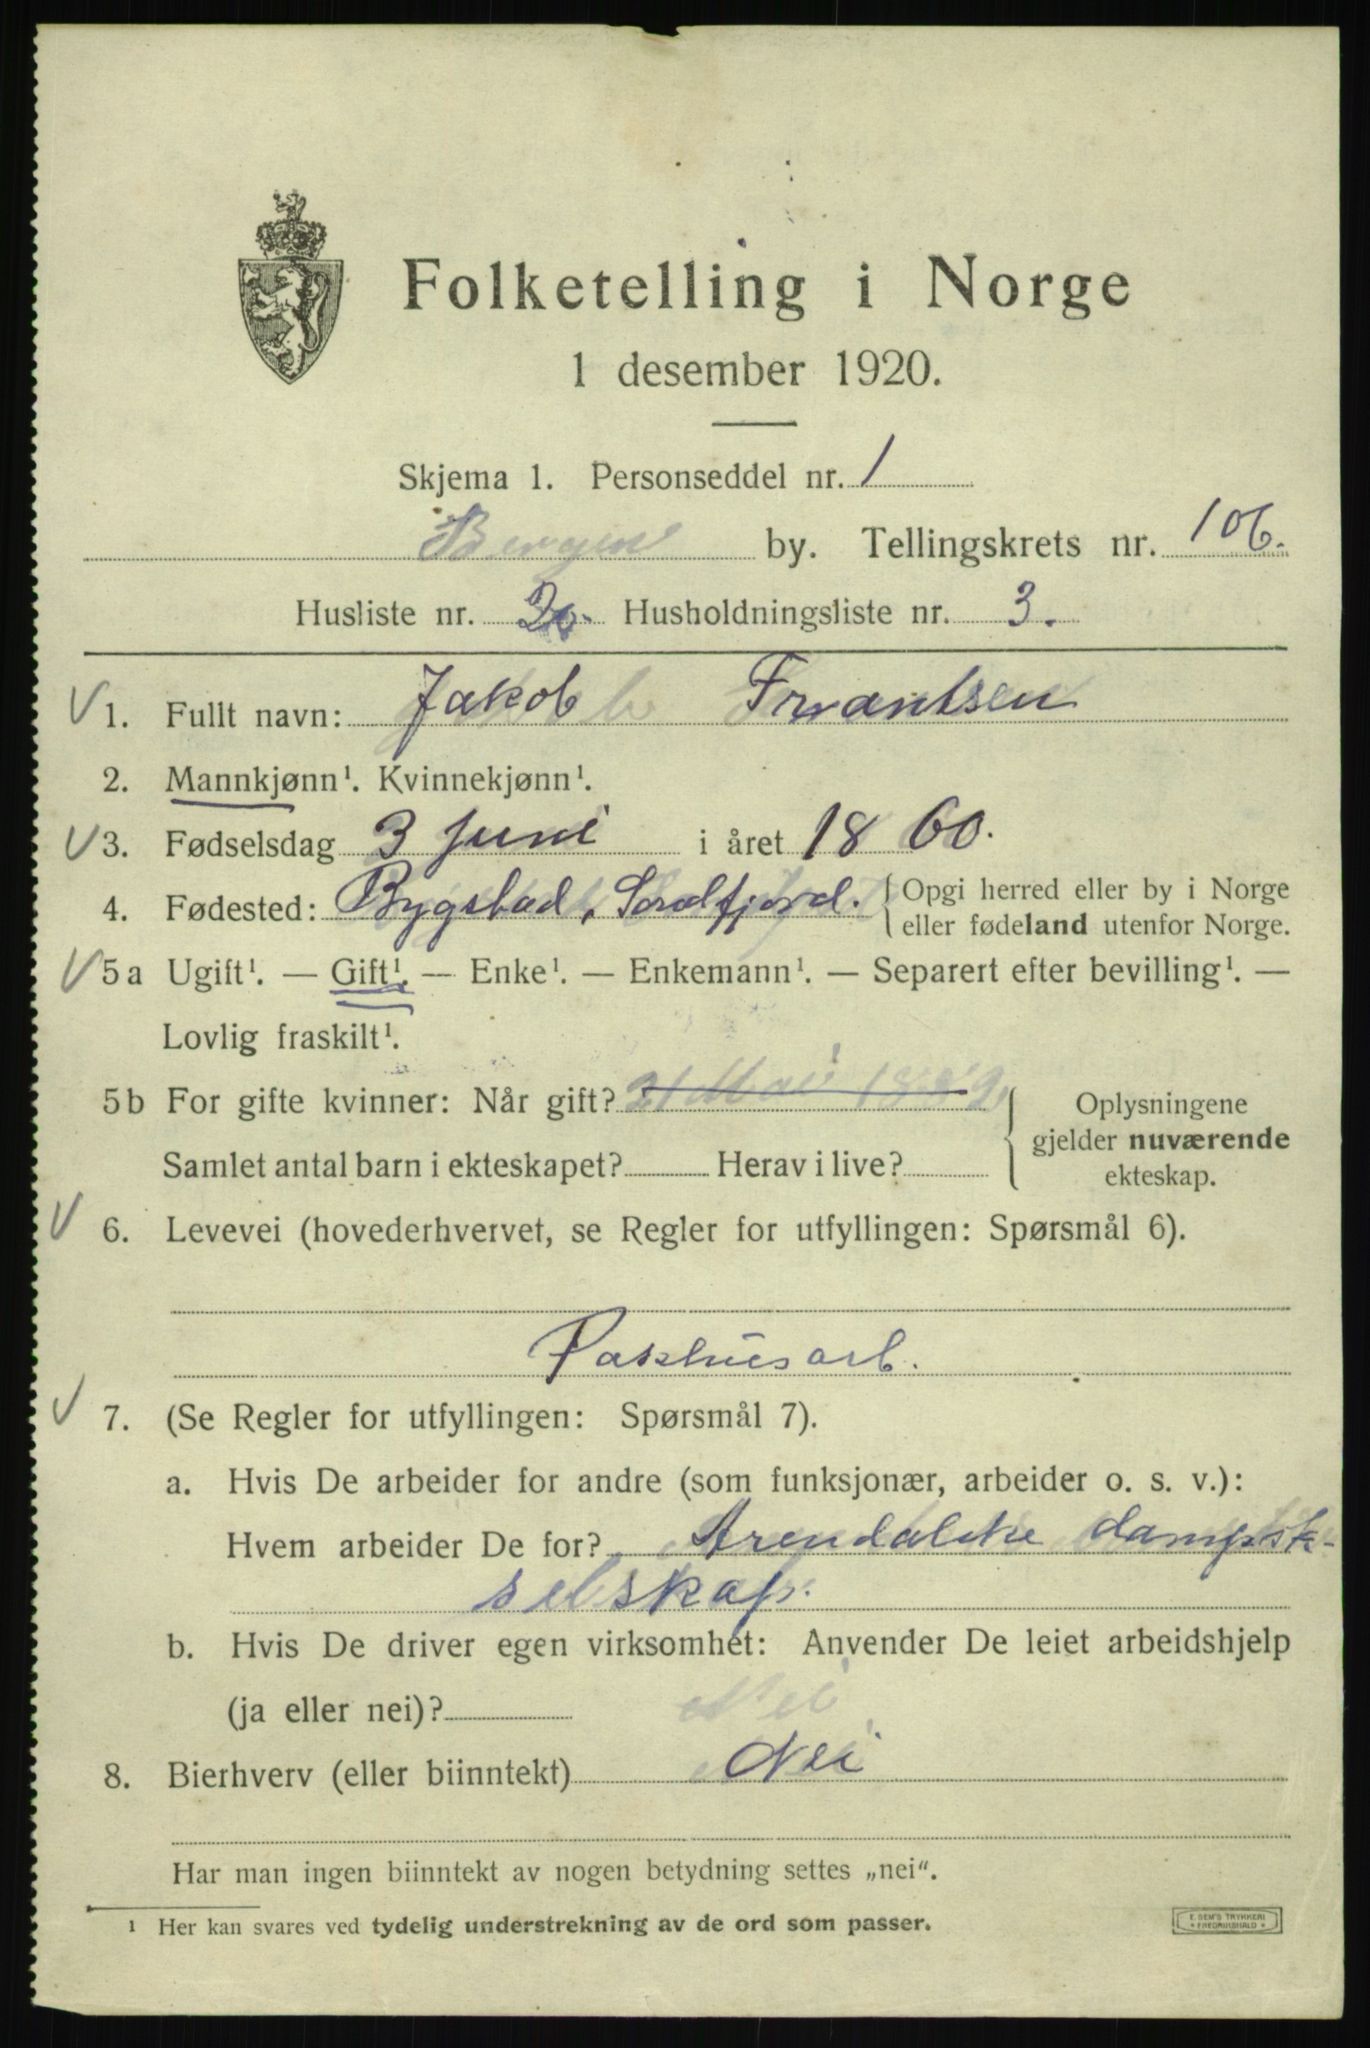 Folketelling i Norge
1 desember 1920.
Skjema 1. Personseddel nr. 1
Bergen by. Tellingskrets nr. 106.
Husliste nr. Husholdningsliste nr. 3.
1. Fullt navn: Jakob Frantsen
2. Mannkjønn¹. Kvinnekjønn¹.
3. Fødselsdag 3 juni i året 1860.
4. Fødested: Bygstad, Søndfjord. { Opgi herred eller by i Norge
eller fødeland utenfor Norge.
5a Ugift¹. — Gift¹. — Enke¹. — Enkemann¹. — Separert efter bevilling¹. —
Lovlig fraskilt¹.
5b For gifte kvinner: Når gift? 21 Mai 1889.
Samlet antal barn i ekteskapet? Herav i live?
Oplysningene
gjelder nuværende
ekteskap.
6. Levevei (hovederhvervet, se Regler for utfyllingen: Spørsmål 6).
Pakhusarb.
7. (Se Regler for utfyllingen: Spørsmål 7).
a. Hvis De arbeider for andre (som funksjonær, arbeider o. s. v.):
Hvem arbeider De for? Arendalske dampsk-
selskap.
b. Hvis De driver egen virksomhet: Anvender De leiet arbeidshjelp
(ja eller nei)? Nei
8. Bierhverv (eller biinntekt) Nei
Har man ingen biinntekt av nogen betydning settes „nei“.
¹ Her kan svares ved tydelig understrekning av de ord som passer.
E. SEM'S TRYKKERI
FREDRIKSHALD